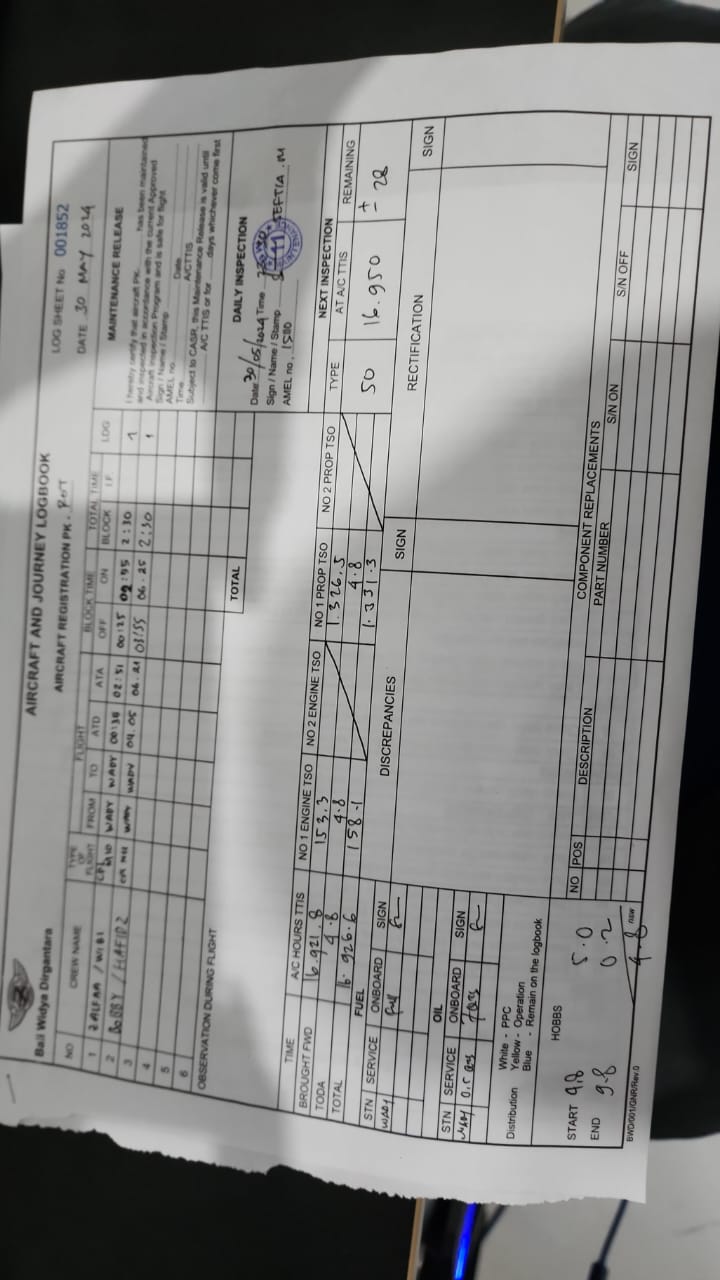 AIRCRAFT AND JOURNEY LOGBOOK
Bali Widya Dirgantara
AIRCRAFT REGISTRATION PK -
LOG SHEET No 001852
DATE 30 MAY 2024
NO CREW NAME TYPE OF FLIGHT FLIGHT BLOCK TIME TOTAL TIME LDG
FROM TO ATD ATA OFF ON BLOCK I.F.
1 / WIBI WADY WADY 00:38 02:51 00:25 02:55 2:30 1
2 BOBBY / HAFIDZ WADY 04.05 06.21 03:55 06.25 2:30 1
3
4
5
6
TOTAL
OBSERVATION DURING FLIGHT
MAINTENANCE RELEASE
I hereby certify that aircraft PK. has been maintained
and inspected in accordance with the current Approved
Aircraft Inspection Program and is safe for flight
Sign / Name / Stamp
AMEL no Date
Time A/CTTIS
Subject to CASR, this Maintenance Release is valid until
A/C TTIS or for days whichever come first
DAILY INSPECTION
Date 30/05/2024 Time
Sign / Name / Stamp SEFTIA . M
AMEL no, 1580
TIME A/C HOURS TTIS NO 1 ENGINE TSO NO 2 ENGINE TSO NO 1 PROP TSO NO 2 PROP TSO
BROUGHT FWD 16.921.8 153.3 1.326.5
TODA 4.8 4.8 4.8
TOTAL 16.926.6 158.1 1.331.3
NEXT INSPECTION
TYPE AT A/C TTIS REMAINING
50 16.950 ± 28
FUEL
STN SERVICE ONBOARD SIGN
WADY full
OIL
STN SERVICE ONBOARD SIGN
WADY 0.5 qrs 7 qrs
DISCREPANCIES SIGN RECTIFICATION SIGN
Distribution White - PPC
Yellow - Operation
Blue - Remain on the logbook
HOBBS
START 9.8 5.0
END 9.8 0.2
4.8
COMPONENT REPLACEMENTS
NO POS DESCRIPTION PART NUMBER S/N ON S/N OFF SIGN
BWD/001/GNR/Rev.0